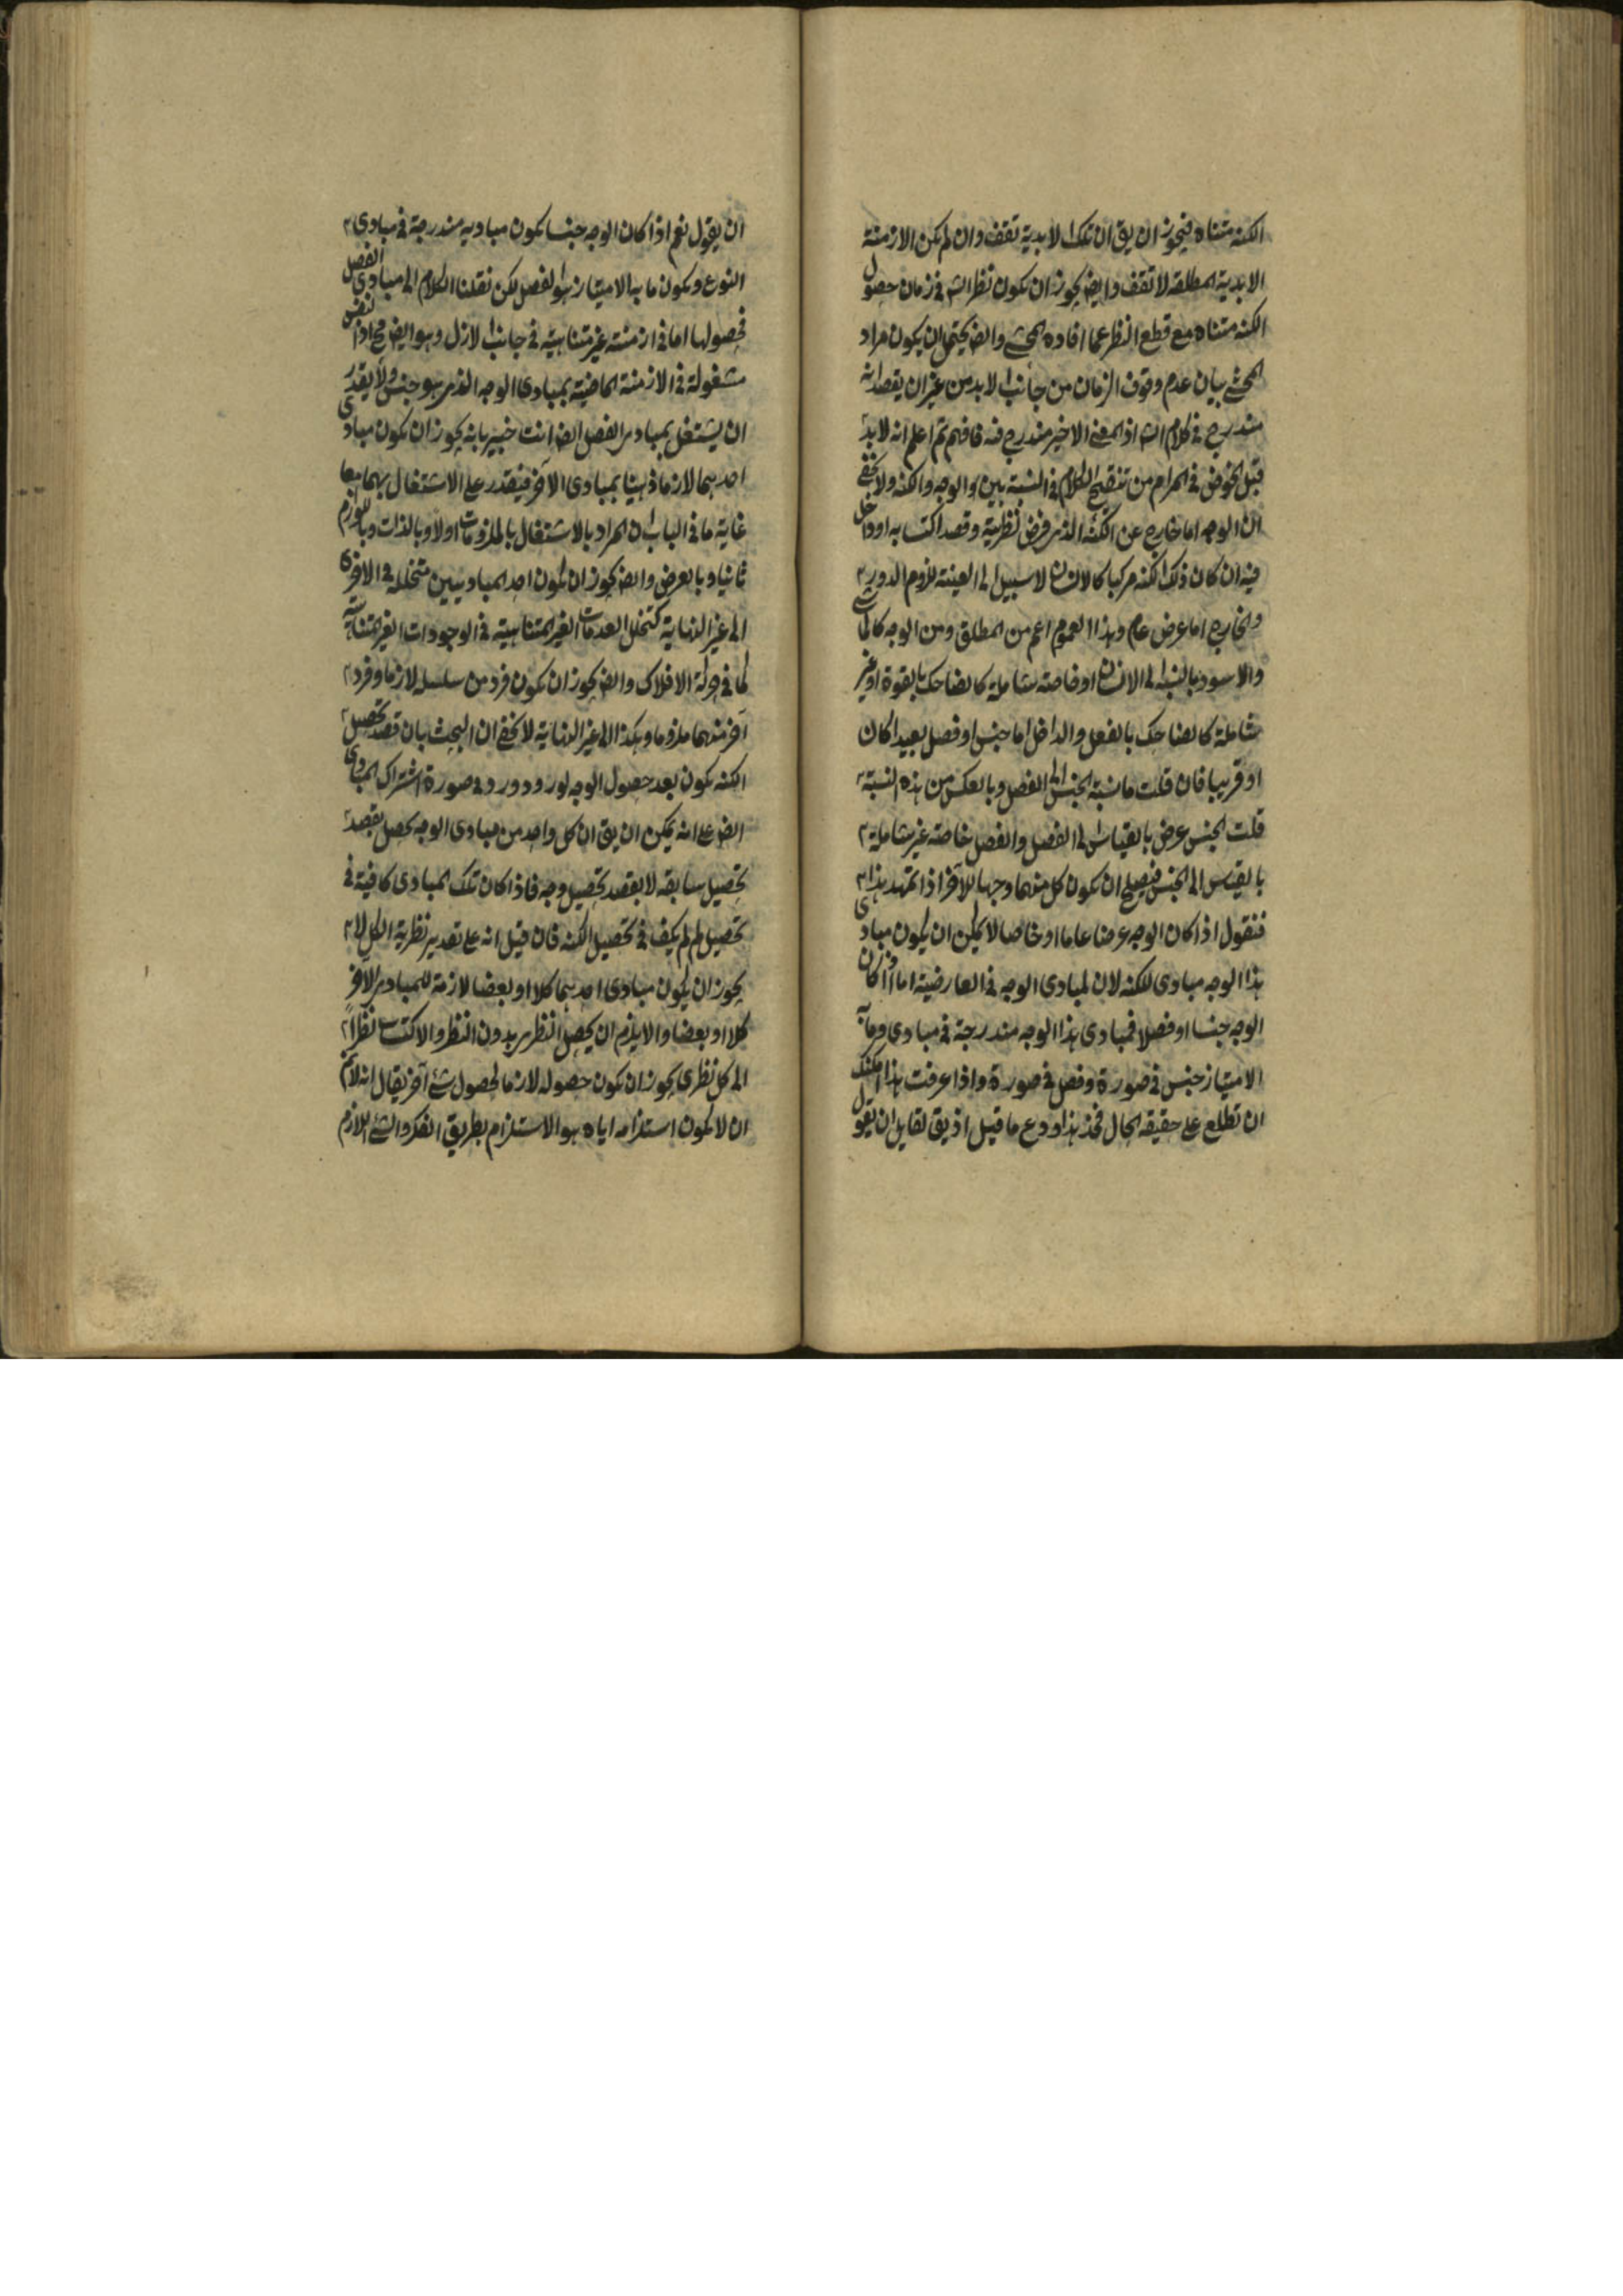 الكنه متناه فيجوز ان يق ان تلك الابدية تقف وان لم يكن الازمنة
الابدية المطلقة لا تقف وايض يجوز ان يكون نظر الش في زمان حصول
الكنه متناه مع قطع النظر عما افاده المحشي وايض يحتمل ان يكون مراد
المحشي بيان عدم وقوف الزمان من جانب الابد من غير ان يقصد انه
مندرج في كلام الش اذ المعنى الاخير مندرج فيه فافهم ثم اعلم انه لا بد
قبل الخوض في المرام من تنقيح الكلام في النسبة بين الوجه والكنه ولا يخفى
ان الوجه اما خارج عن الكنه الذي فرض نظرية وقصد اكتسابه او داخل
فيه ان كان ذلك الكنه مركبا كالانسان لا سبيل الى العينية للزوم الدور
والخارج اما عرض عام وهذا العموم اعم من المطلق ومن الوجه كالماشي
والاسود بالنسبة الى الانسان او خاصة شاملة كالضاحك بالقوة او غير
شاملة كالضاحك بالفعل والداخل اما جنس او فصل بعيدا كان
او قريبا فان قلت ما نسبة الجنس الى الفصل وبالعكس من هذه النسبة
قلت الجنس عرض بالقياس الى الفصل والفصل خاصة غير شاملة
بالقياس الى الجنس فيصلح ان يكون كل منهما وجها للآخر اذا تمهد هذا
فنقول اذا كان الوجه عرضا عاما او خاصا لا يمكن ان يكون مبادي
هذا الوجه مبادي للكنه لان لمبادي الوجه في العارضية اما اذا كان
الوجه جنسا او فصلا فمبادي هذا الوجه مندرجة في مبادي وما به
الامتياز جنس في صورة وفصل في صورة واذا عرفت هذا امكنك
ان تطلع على حقيقة الحال فخذ هذا ودع ما قيل اذ يق لقايل ان يقول
ان يقول نعم اذا كان الوجه جنسا يكون مباديه مندرجة في مبادي
النوع ويكون ما به الامتياز هو الفصل لكن نقلنا الكلام الى مبادي الفصل
فحصولها اما في ازمنة غير متناهية في جانب الازل وهو ايض مح اذ النفس
مشغولة في الازمنة الماضية بمبادي الوجه الذي هو جنس ولا يقدر
ان يشتغل بمبادي الفصل ايض انت خبير بانه يجوز ان يكون مبادي
احدهما لازما ذهنيا بمبادي الآخر فيقدر على الاشتغال بهما معا
غاية ما في الباب ان المراد بالاشتغال بالملزومات اولا وبالذات وباللوازم
ثانيا وبالعرض وايض يجوز ان يكون احد المباديين متخللة في الاخرى
الى غير النهاية كتخلل العدمات الغير المتناهية في الوجودات الغير المتناهية
كما في حركة الافلاك وايض يجوز ان يكون فرد من سلسلة لازما وفرد
آخر منهما ملزوما وهكذا الى غير النهاية لا يخفى ان البحث بان قصد تحصيل
الكنه يكون بعد حصول الوجه لورود ورد في صورة اشتراك المبادي
ايض على انه يمكن ان يق ان كل واحد من مبادي الوجه يحصل بقصد
تحصيل سابقه لا بقصد تحصيل وجه فاذا كان تلك المبادي كافية في
تحصيل لم لم يكف في تحصيل الكنه فان قيل انه على تقدير نظرية الكل لا
يجوز ان يكون مبادي احدهما كلا او بعضا لازمة للمبادي الآخر
كلا او بعضا والا يلزم ان يحصل النظري بدون النظر والاكتساب نظرا
الى كل نظري يجوز ان يكون حصوله لازما لحصول شيء آخر يقال انه لا ثم
ان لا يكون استلزامه اياه هو الاستلزام بطريق الفكر والشيء اللازم